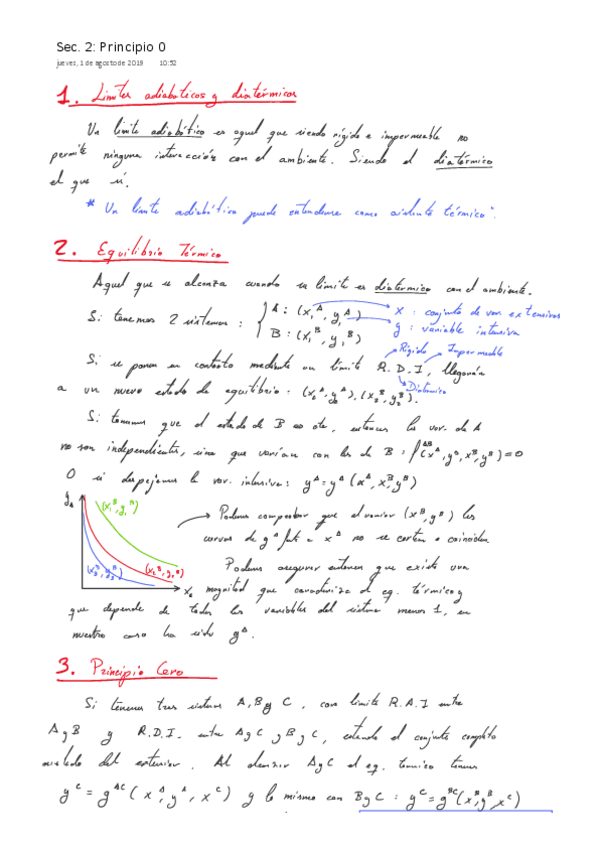 Sec. 2: Principio 0
jueves, 1 de agosto de 2019 10:52
1. Límites adiabáticos y diatérmicos
Un límite adiabático es aquel que siendo rígido e impermeable no
permite ninguna interacción con el ambiente. Siendo el diatérmico
el que sí.
* Un límite adiabático puede entenderse como aislante térmico".
2. Equilibrio Térmico
Aquel que se alcanza cuando su límite es diatérmico con el ambiente.
Si tenemos 2 sistemas : { A : (x₁ᴬ, y₁ᴬ) x : conjunto de var. extensivas
B : (x₁ᴮ, y₁ᴮ) y : variable intensiva
Rígido Impermeable
Si se ponen en contacto mediante un límite R. D. I, llegarán
Diatérmico
a un nuevo estado de equilibrio : (x₂ᴬ, y₂ᴬ), (x₂ᴮ, y₂ᴮ).
Si tenemos que el estado de B es cte, entonces las var. de A
no son independientes, sino que varían con las de B : f^AB(xᴬ, yᴬ, xᴮ, yᴮ) = 0
O si despejamos la var. intensiva : yᴬ = yᴬ (xᴬ, xᴮ, yᴮ)
y_A
(x₁ᴮ, y₁ᴮ)
(x₃ᴮ, y₃ᴮ) (x₂ᴮ, y₂ᴮ)
x_A
→ Podemos comprobar que al variar (xᴮ, yᴮ) las
curvas de yᴬ frente a xᴬ no se cortan o coinciden
Podemos asegurar entonces que existe una
magnitud que caracteriza el eq. térmico y
que depende de todas las variables del sistema menos 1, en
nuestro caso ha sido yᴬ.
3. Principio Cero
Si tenemos tres sistemas A, B y C, con límite R.A.I entre
A y B y R.D.I. entre A y C y B y C, estando el conjunto completo
aislado del exterior. Al alcanzar A y C el eq. térmico tenemos
yᶜ = y^AC (xᴬ, yᴬ, xᶜ) y lo mismo con B y C : yᶜ = y^BC (xᴮ, yᴮ, xᶜ)